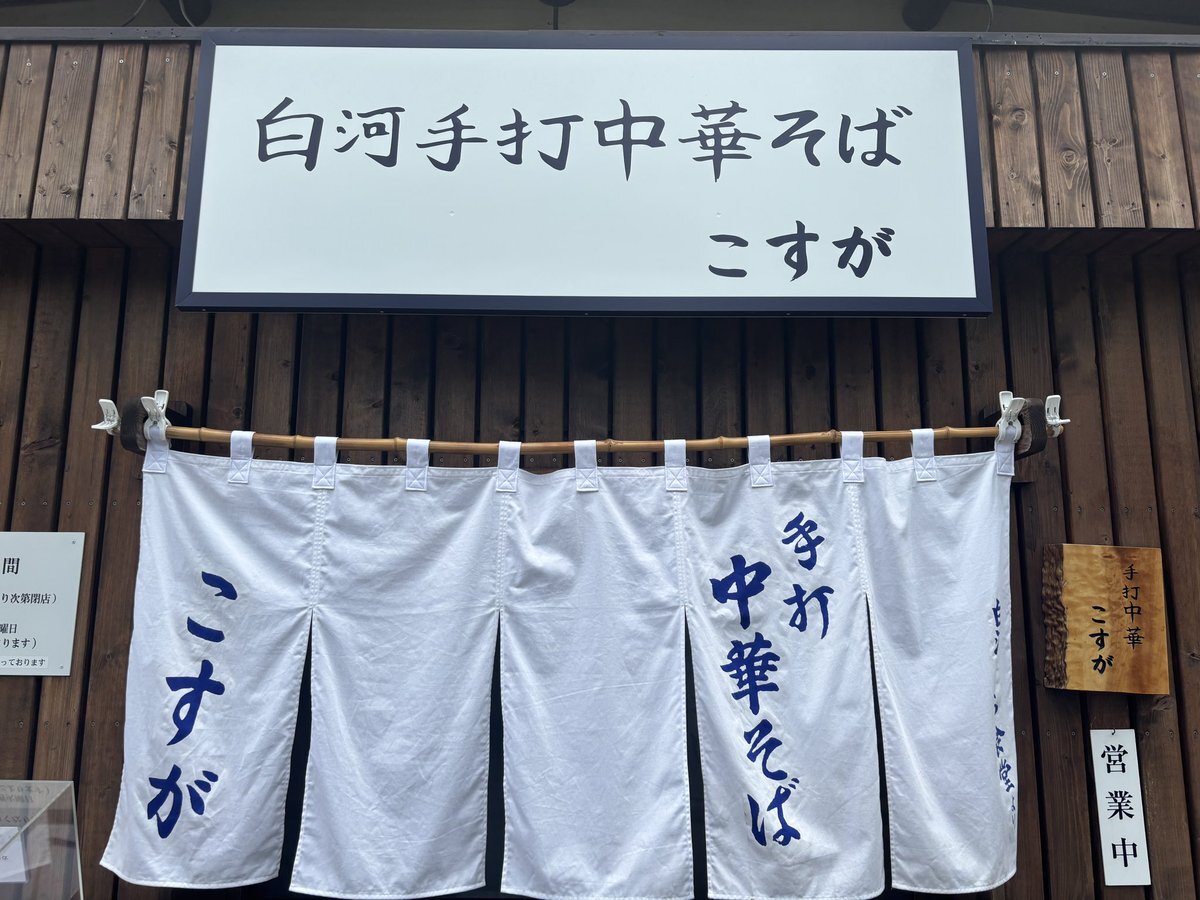 白河手打中華そば
こすが
手打
中華そば
こすが
手打中華
こすが
営業中
間
り次第閉店)
曜日
ります)
っております